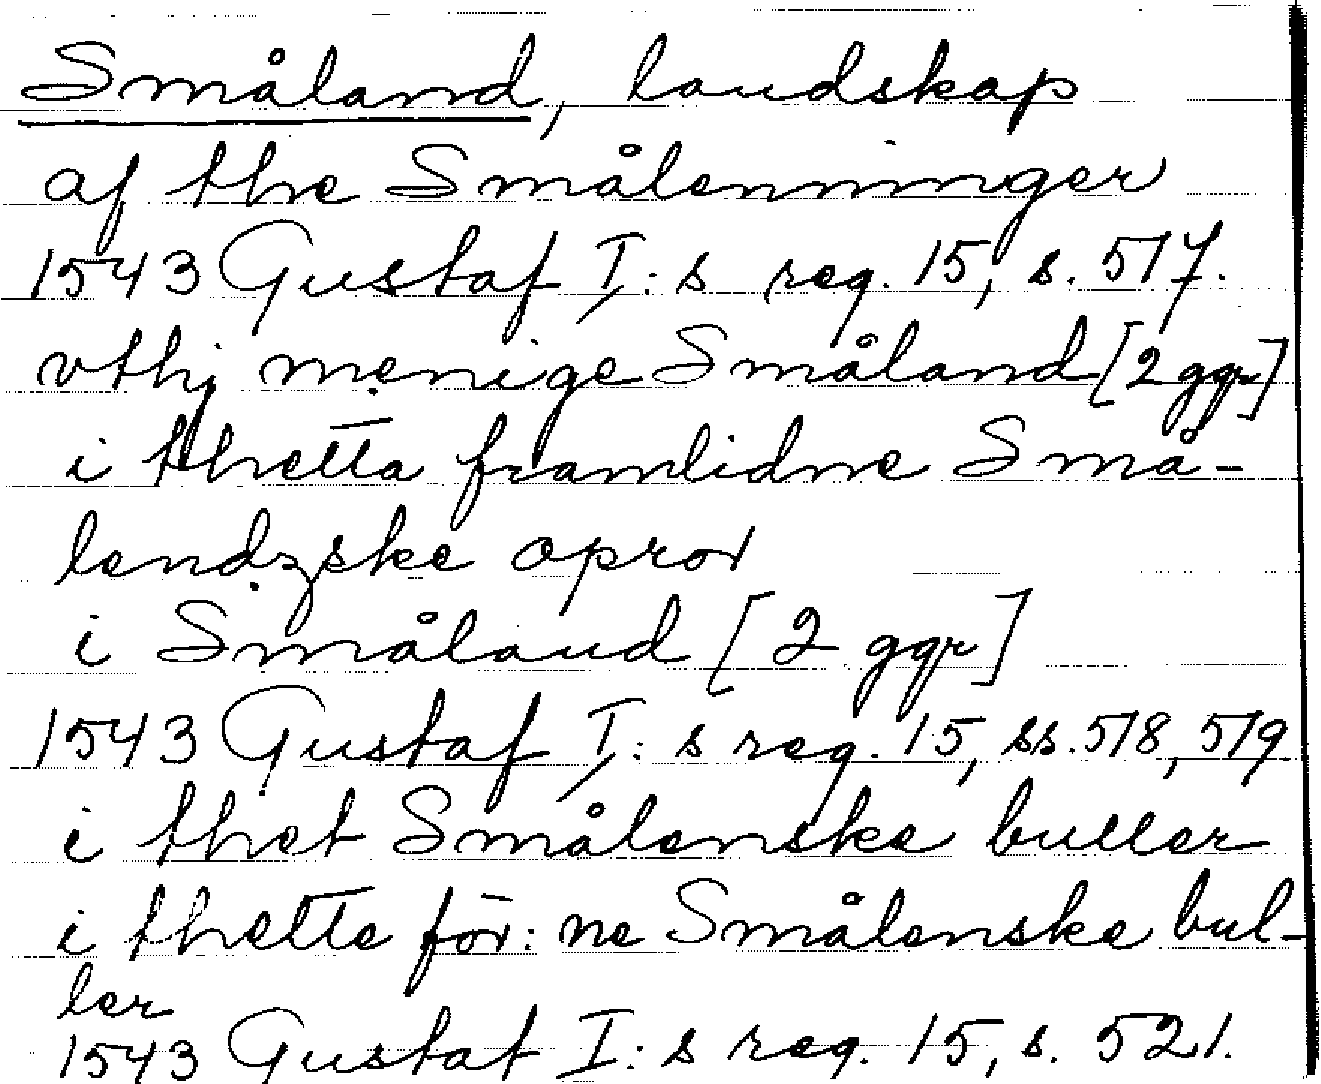 Småland, landskap
af the Smålenninger
1543 Gustaf I:s reg. 15, s. 517.
vthj menige Småland [2 ggr]
i thetta framlidne Små-
lendzske opror
i Småland [2 ggr]
1543 Gustaf I:s reg. 15, ss. 518, 519
i thet Smålenske buller
i thette för:ne Smålenske bul-
ler
1543 Gustaf I:s reg. 15, s. 521.